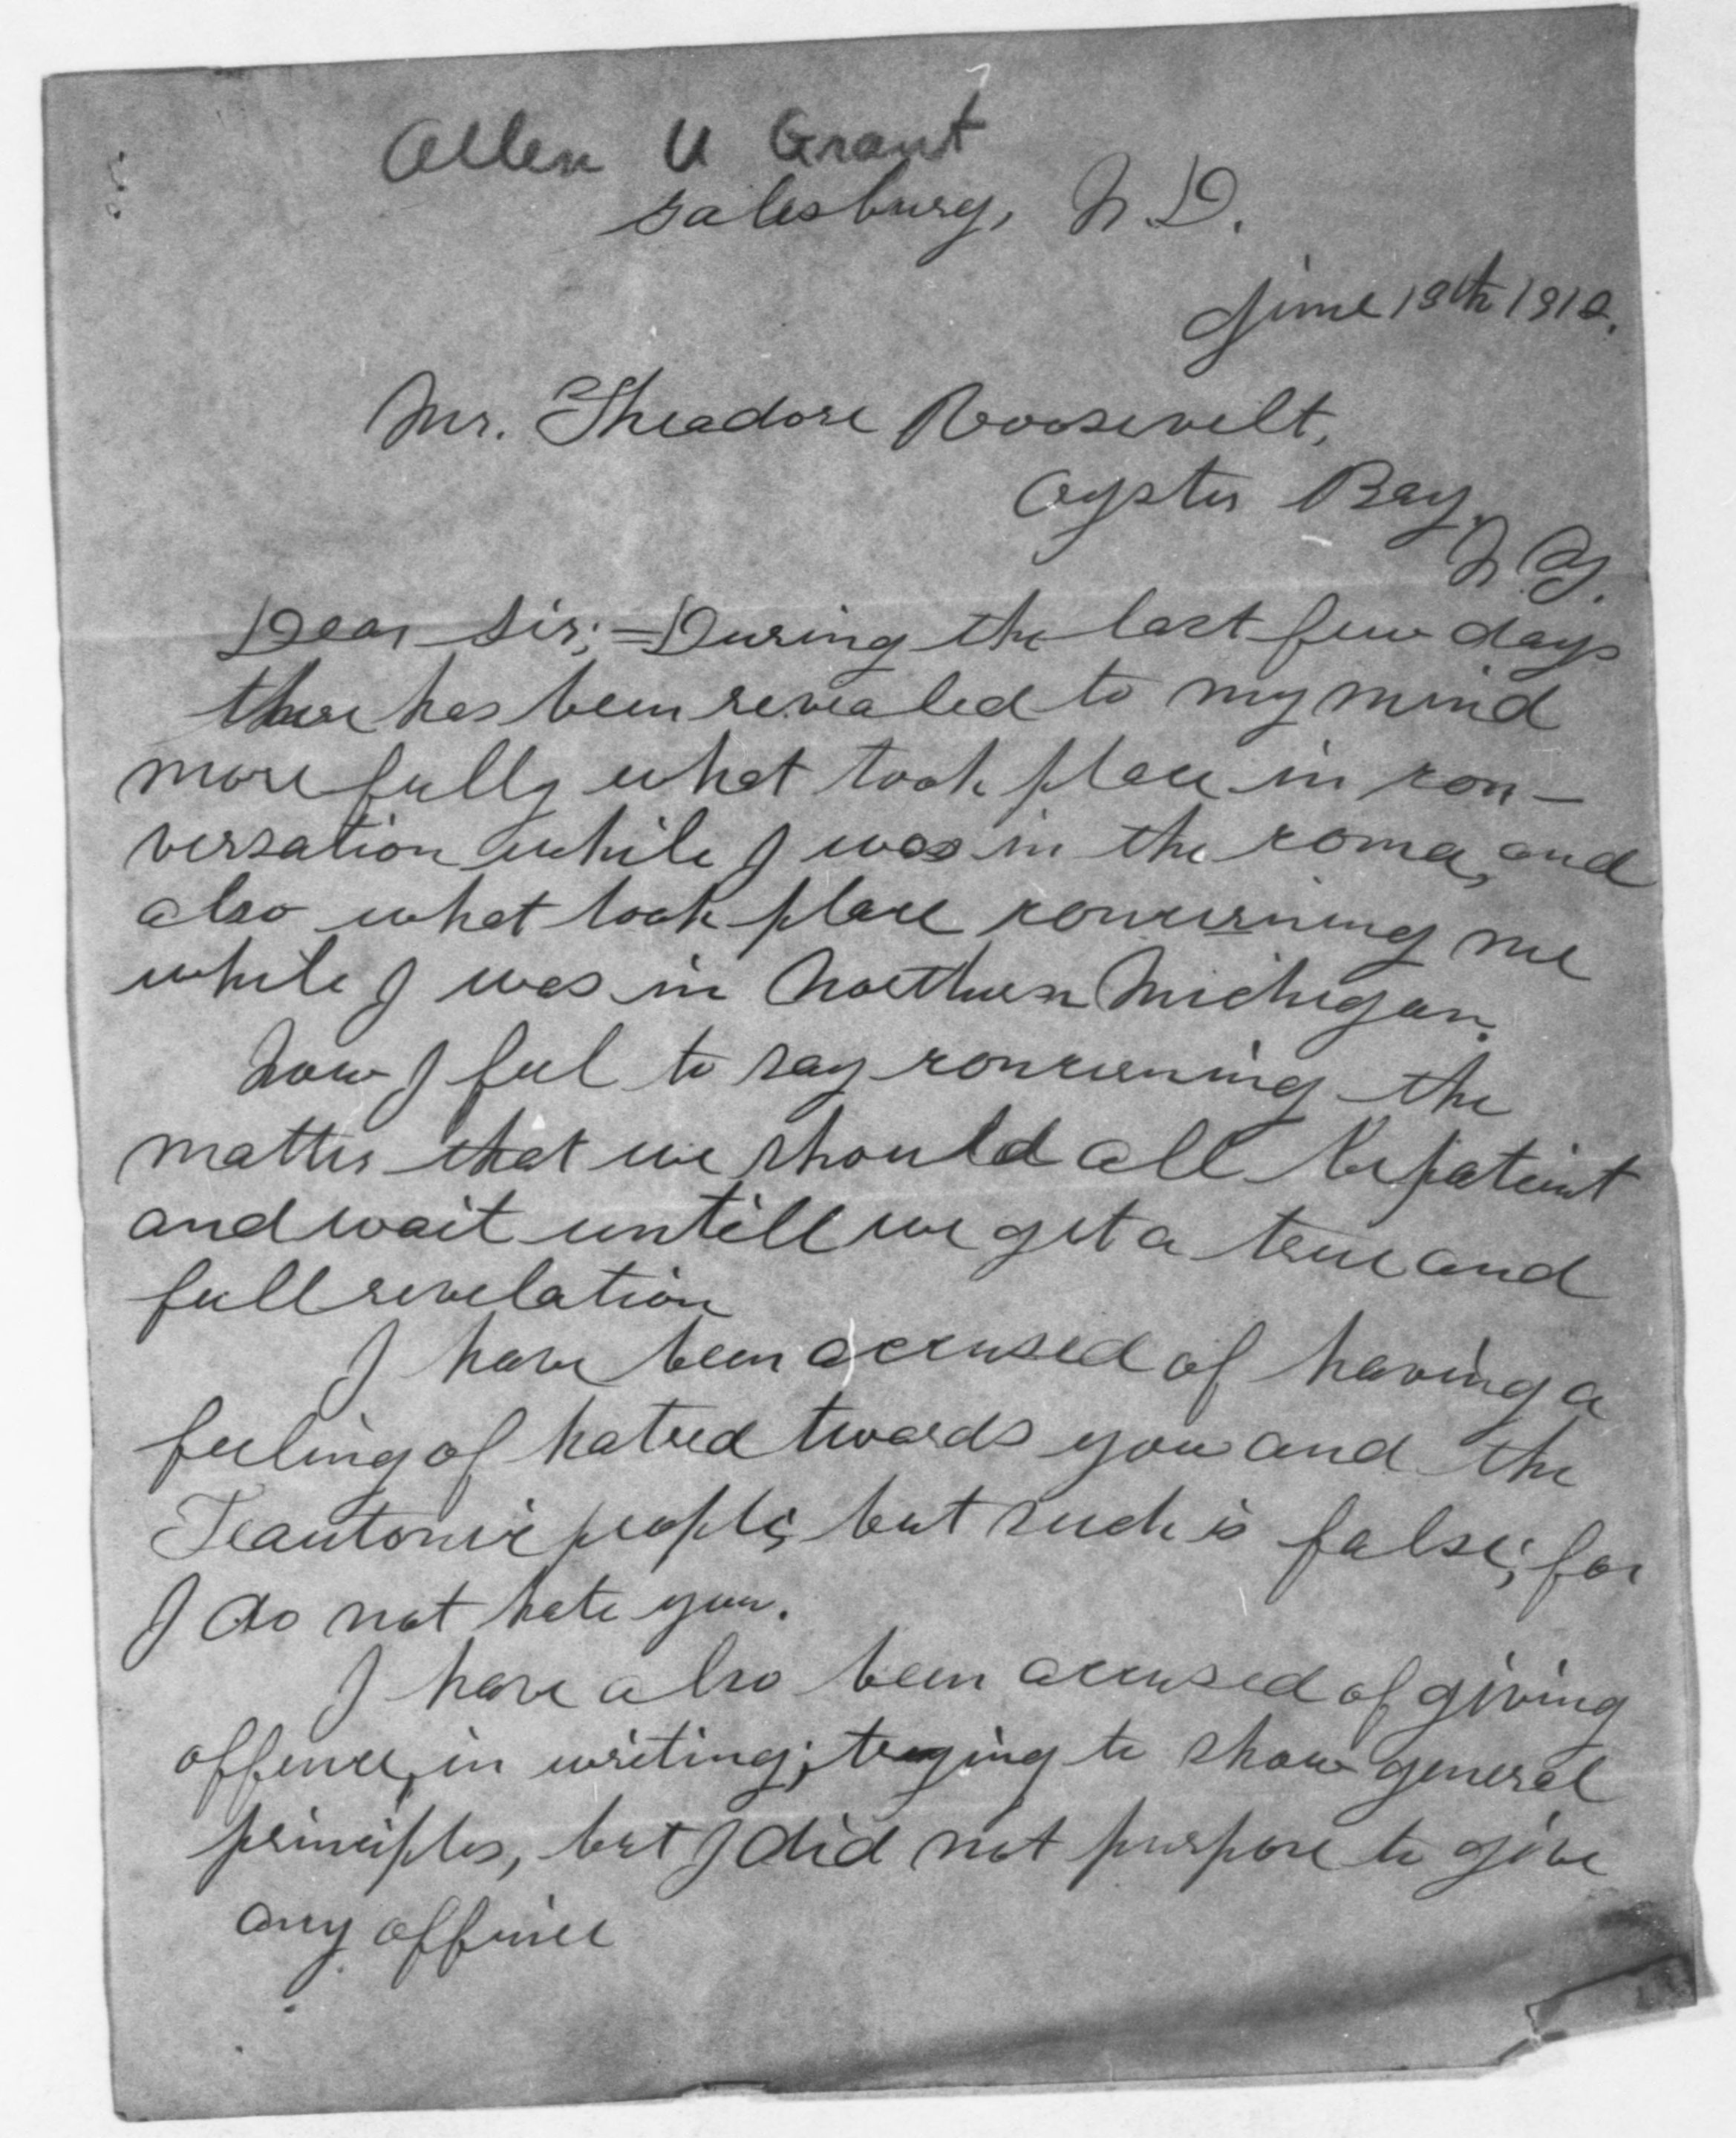 Allen U Grant
Galesburg, N.D.
June 19th 1912.
Mr. Theadore Roosevelt,
Oyster Bay,
N.Y.
Dear Sir; = During the last few days
there has been revealed to my mind
more fully what took place in con-
versation while I was in the coma, and
also what took place concerning me
while I was in Northern Michigan.
Now I feel to say concerning the
matter that we should all be patient
and wait untill we get a true and
full revelation
I have been accused of having a
feeling of hatred twards you and the
Teautonic people, but such is false; for
I do not hate you.
I have also been accused of giving
offence, in writing; trying to show general
principles, but I did not purpose to give
any offence